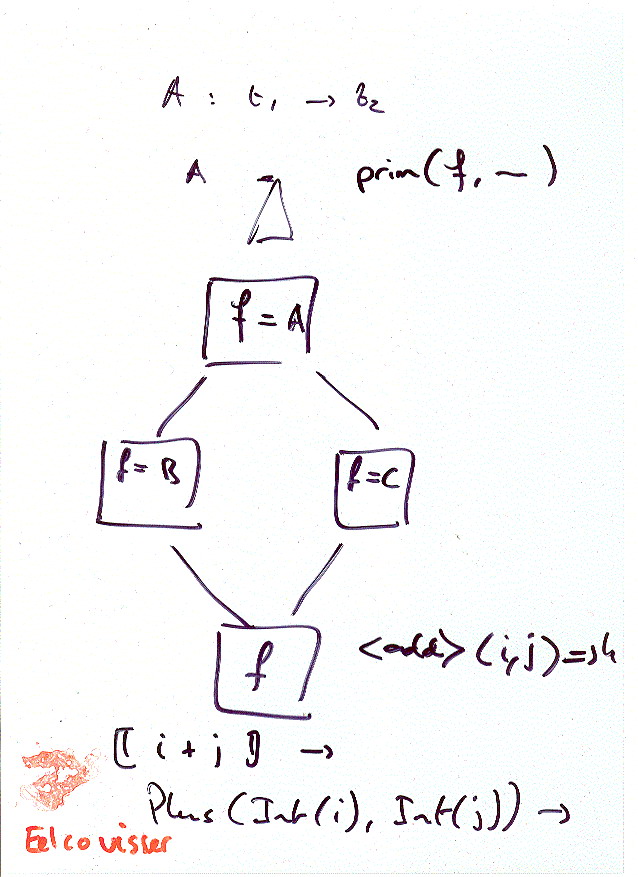 A : t₁ → t₂
A
prim(f, ~)
f = A
f = B
f = C
f
<add> (i,j) =
⟦ i + j ⟧ →
Plus (Int(i), Int(j)) →
Eelco visser